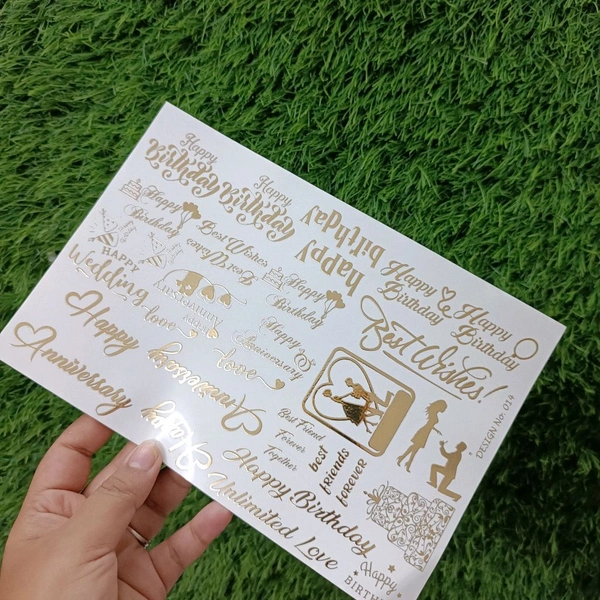 Happy
Birthday
Happy
Birthday
happy
birthday
Happy
Birthday
Happy
Birthday
Happy
Birthday
Best Wishes
Best Wishes
Happy
Birthday
HAPPY
Wedding
HAPPY
Anniversary
love
love
Happy
Anniversary
Best Wishes!
Happy
Anniversary
Happy
Anniversary
Best Friend
Forever
Together
best
friends
forever
DESIGN No: 014
Happy Birthday
Unlimited Love
Happy